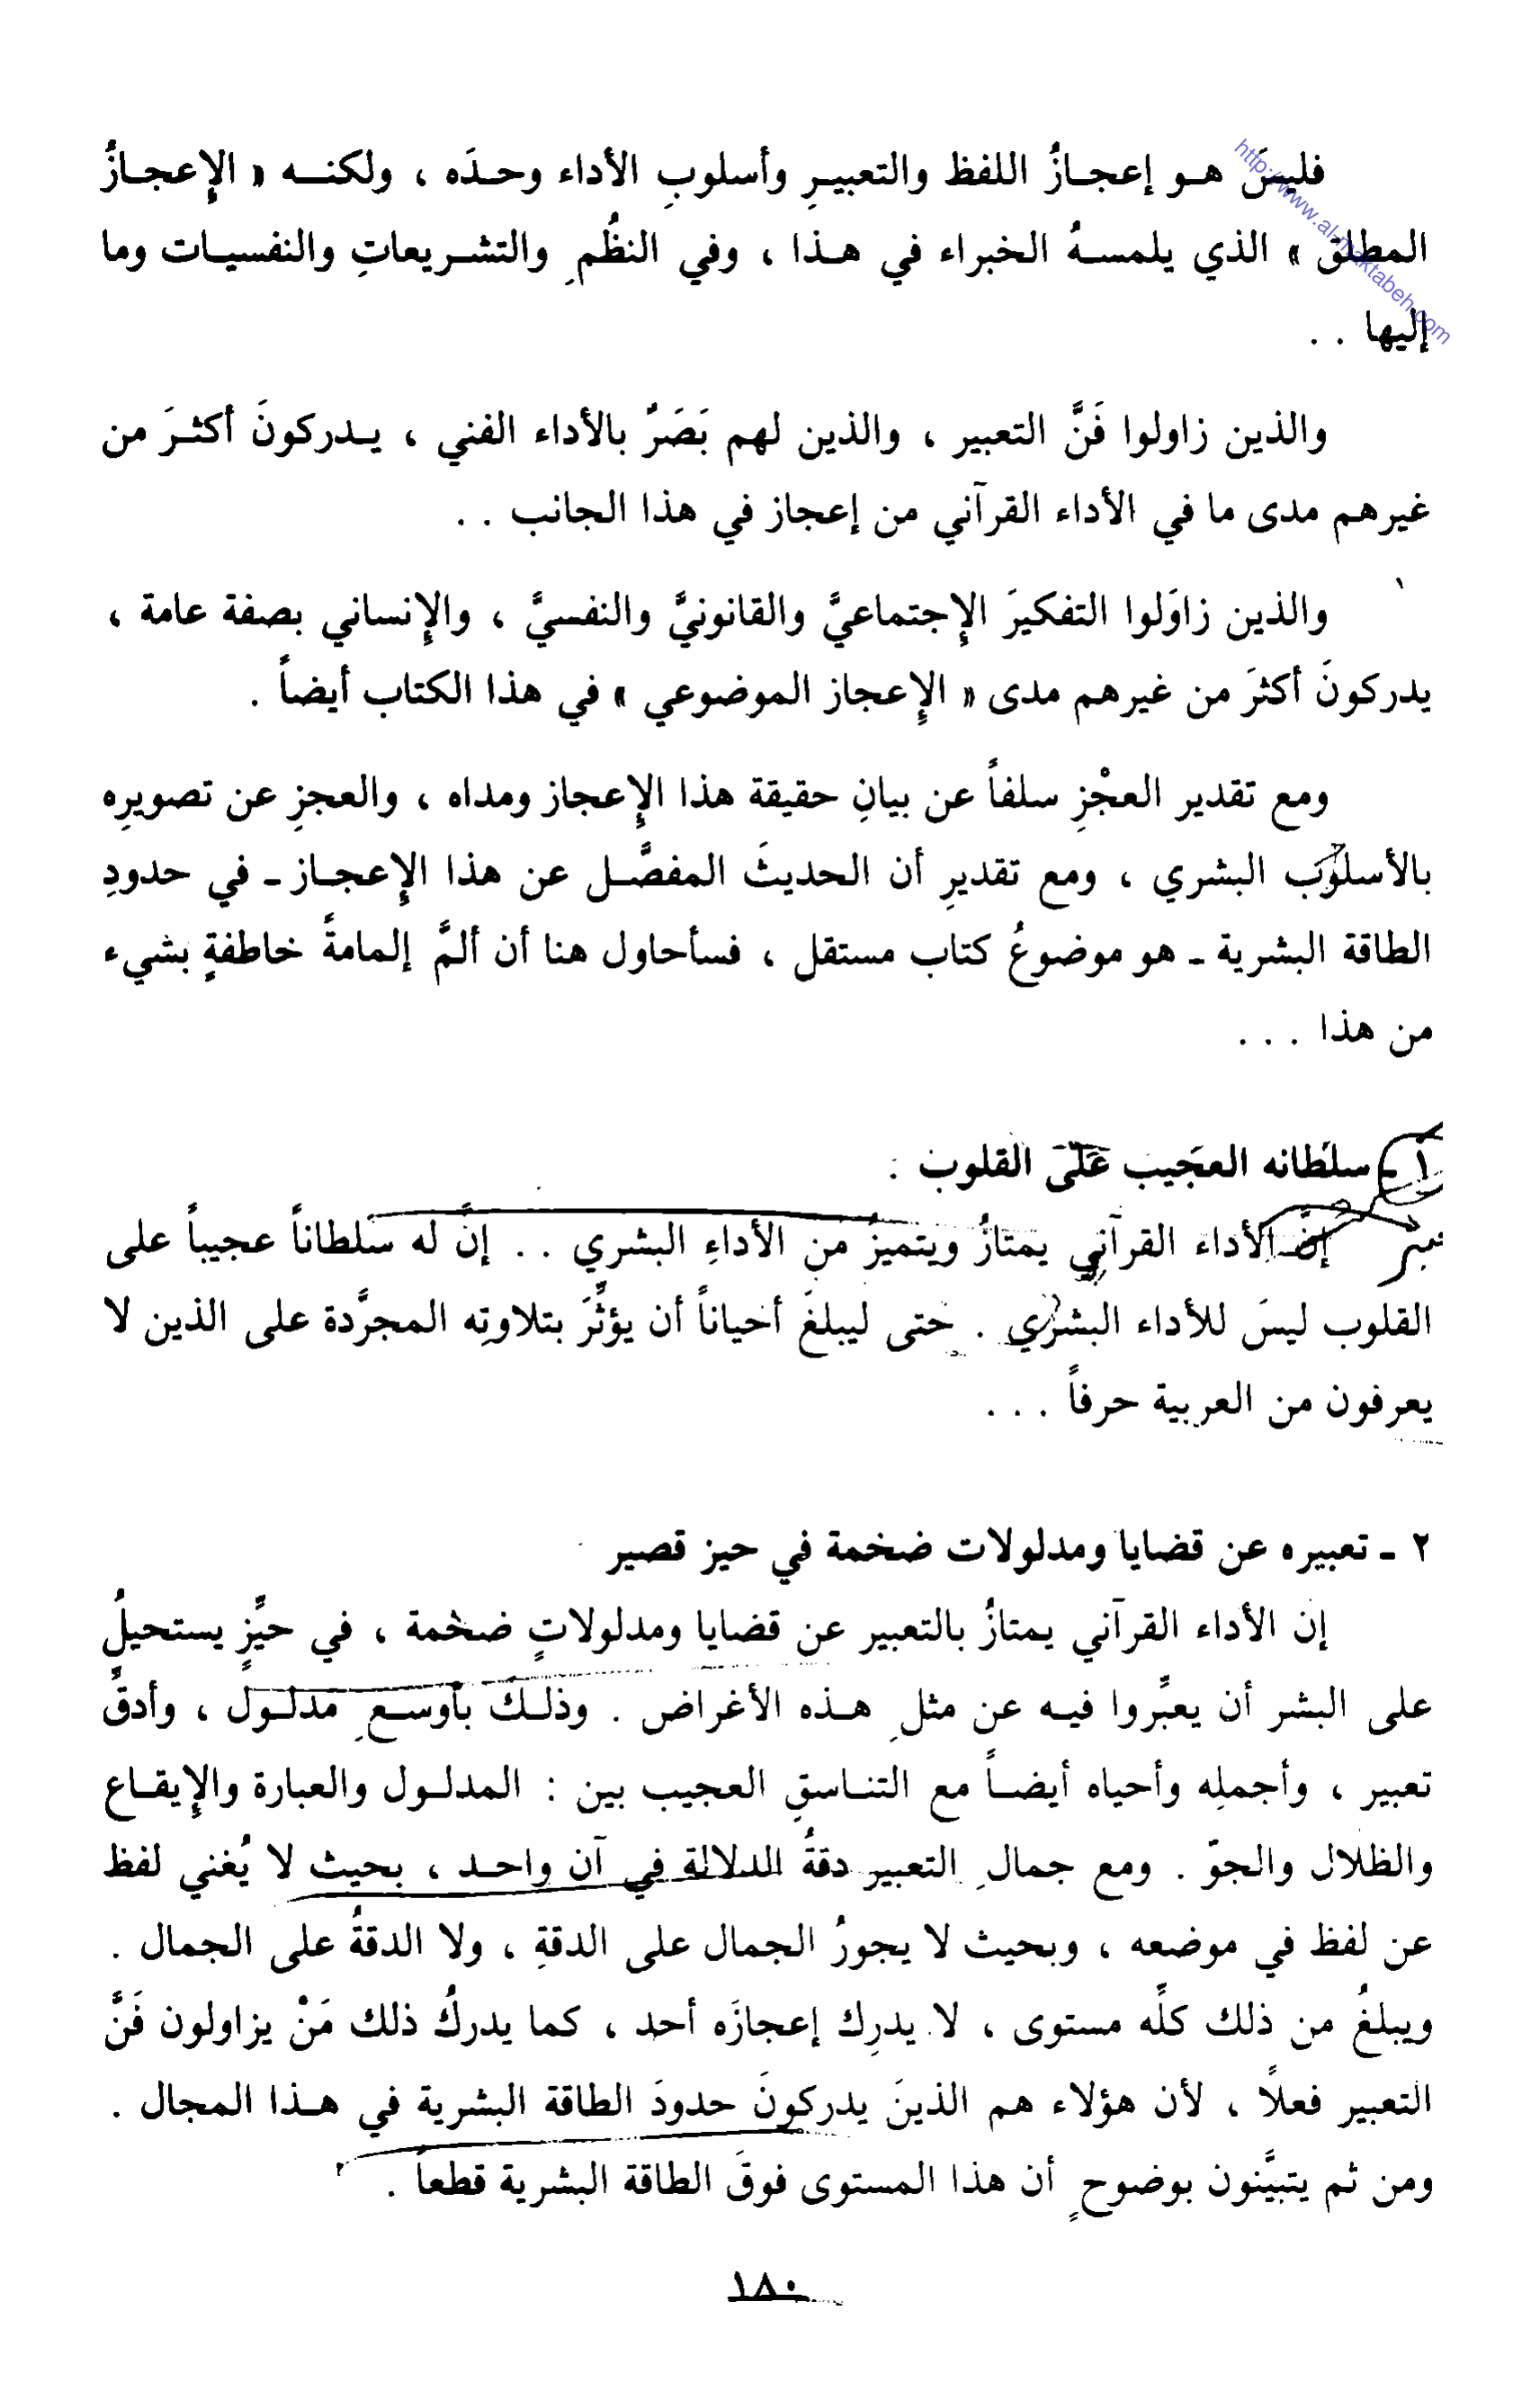 فليسَ هـو إعجـازُ اللفظ والتعبيـرِ وأسلوبِ الأداء وحـدَه ، ولكنـــه « الإِعجـازُ
المطلق » الذي يلمسـهُ الخبراء في هـذا ، وفي النظُمِ والتشـريعاتِ والنفسيـات وما
إليها . .
والذين زاولوا فَنَّ التعبير ، والذين لهم بَصَرٌ بالأداء الفني ، يـدركونَ أكثـرَ من
غيرهم مدى ما في الأداء القرآني من إعجاز في هذا الجانب . .
والذين زاوَلوا التفكيرَ الإِجتماعيَّ والقانونيَّ والنفسيَّ ، والإِنساني بصفة عامة ،
يدركونَ أكثرَ من غيرهم مدى « الإِعجاز الموضوعي » في هذا الكتاب أيضاً .
ومع تقدير العجْزِ سلفاً عن بيانِ حقيقة هذا الإِعجاز ومداه ، والعجزِ عن تصويرِه
بالأسلوب البشري ، ومع تقديرِ أن الحديثَ المفصَّـل عن هذا الإِعجـاز ـ في حدودِ
الطاقة البشرية ـ هو موضوعُ كتاب مستقل ، فسأحاول هنا أن ألمَّ إلمامةً خاطفةٍ بشيء
من هذا . . .
١ ـ سلطانه العجيب على القلوب :
إنَّ الأداء القرآني يمتازُ ويتميزُ من الأداءِ البشري . . إنَّ له سلطاناً عجيباً على
القلوب ليسَ للأداء البشري . حتى ليبلغَ أحياناً أن يؤثِّرَ بتلاوتِه المجرَّدة على الذين لا
يعرفون من العربية حرفاً . . .
٢ ـ تعبيره عن قضايا ومدلولات ضخمة في حيز قصير
إن الأداء القرآني يمتازُ بالتعبير عن قضايا ومدلولاتٍ ضخمة ، في حيِّزٍ يستحيلُ
على البشر أن يعبِّروا فيـه عن مثلِ هـذه الأغراض . وذلـك بأوسـعِ مدلـولٍ ، وأدقِّ
تعبير ، وأجملِه وأحياه أيضـاً مع التنـاسقِ العجيب بين : المدلـول والعبارة والإِيقـاع
والظلال والجوّ . ومع جمالِ التعبير دقةُ الدلالة في آن واحـد ، بحيث لا يُغني لفظ
عن لفظ في موضعه ، وبحيث لا يجورُ الجمال على الدقةِ ، ولا الدقةُ على الجمال .
ويبلغُ من ذلك كلِّه مستوى ، لا يدرِك إعجازَه أحد ، كما يدركُ ذلك مَنْ يزاولون فَنَّ
التعبير فعلًا ، لأن هؤلاء هم الذينَ يدركونَ حدودَ الطاقة البشرية في هـذا المجال .
ومن ثم يتبيَّنون بوضوحٍ أن هذا المستوى فوقَ الطاقة البشرية قطعاً .
١٨٠
http://www.al-maktabeh.com